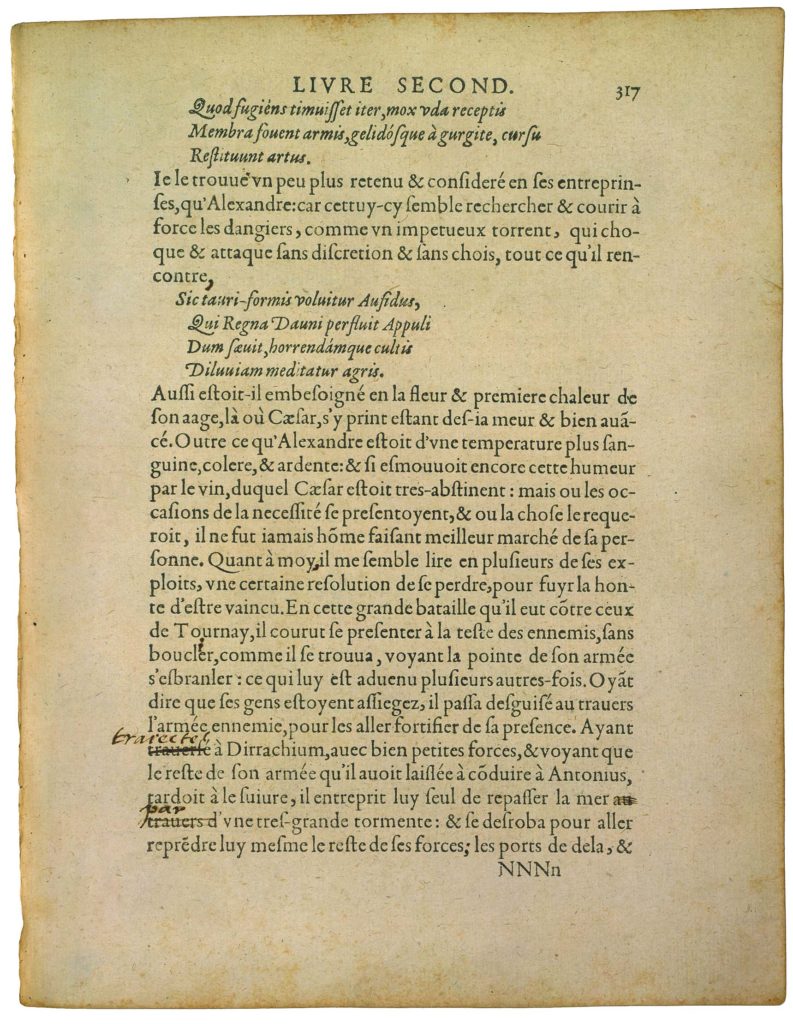 LIVRE SECOND. 317
Quod fugiens timuisset iter, mox vda receptis
Membra fouent armis, gelidósque à gurgite, cursu
Restituunt artus.
Ie le trouue vn peu plus retenu & consideré en ses entreprin-
ses, qu'Alexandre: car cettuy-cy semble rechercher & courir à
force les dangiers, comme vn impetueux torrent, qui cho-
que & attaque sans discretion & sans chois, tout ce qu'il ren-
contre,
Sic tauri-formis voluitur Aufidus,
Qui Regna Dauni perfluit Appuli
Dum sæuit, horrendámque cultis
Diluuiam meditatur agris.
Aussi estoit-il embesoigné en la fleur & premiere chaleur de
son aage, là où Cæsar, s'y print estant des-ia meur & bien auā-
cé. Outre ce qu'Alexandre estoit d'vne temperature plus san-
guine, colere, & ardente: & si esmouuoit encore cette humeur
par le vin, duquel Cæsar estoit tres-abstinent: mais ou les oc-
casions de la necessité se presentoyent, & ou la chose le reque-
roit, il ne fut iamais hōme faisant meilleur marché de sa per-
sonne. Quant à moy, il me semble lire en plusieurs de ses ex-
ploits, vne certaine resolution de se perdre, pour fuyr la hon-
te d'estre vaincu. En cette grande bataille qu'il eut cōtre ceux
de Tournay, il courut se presenter à la teste des ennemis, sans
bouclier, comme il se trouua, voyant la pointe de son armée
s'esbranler: ce qui luy est aduenu plusieurs autres-fois. Oyāt
dire que ses gens estoyent assiegez, il passa desguisé au trauers
l'armée ennemie, pour les aller fortifier de sa presence. Ayant
traiecté
trauersé à Dirrachium, auec bien petites forces, & voyant que
le reste de son armée qu'il auoit laissée à cōduire à Antonius,
tardoit à le suiure, il entreprit luy seul de repasser la mer au
par
trauers d'vne tres-grande tormente: & se desroba pour aller
reprēdre luy mesme le reste de ses forces; les ports de dela, &
NNNn